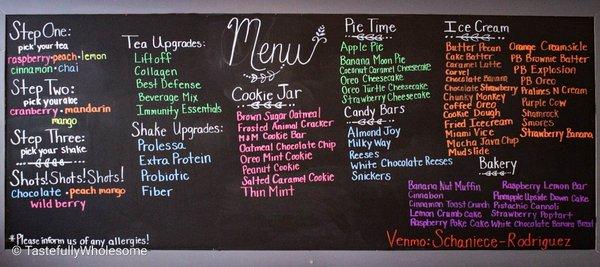 Step One:
pick your tea
raspberry • peach • lemon
cinnamon • chai
Step Two:
pick your aloe
cranberry • mandarin
mango
Step Three:
pick your shake
Shots! Shots! Shots!
chocolate • peach mango
wild berry
*Please inform us of any allergies!
Tea Upgrades:
Liftoff
Collagen
Best Defense
Beverage Mix
Immunity Essentials
Shake Upgrades:
Prolessa
Extra Protein
Probiotic
Fiber
Menu
Cookie Jar
Brown Sugar Oatmeal
Frosted Animal Cracker
M&M Cookie Bar
Oatmeal Chocolate Chip
Oreo Mint Cookie
Peanut Cookie
Salted Caramel Cookie
Thin Mint
Pie Time
Apple Pie
Banana Moon Pie
Coconut Caramel Cheesecake
Oreo Cheesecake
Oreo Turtle Cheesecake
Strawberry Cheesecake
Candy Bars
Almond Joy
Milky Way
Reeses
White Chocolate Reeses
Snickers
Ice Cream
Butter Pecan
Cake Batter
Caramel Latte
Carvel
Chocolate Banana
Chocolate Strawberry
Chunky Monkey
Coffee Oreo
Cookie Dough
Fried Icecream
Miami Vice
Mocha Java Chip
Mudslide
Orange Creamsicle
PB Brownie Batter
PB Explosion
PB Oreo
Pralines N Cream
Purple Cow
Shamrock
Smores
Strawberry Banana
Bakery
Banana Nut Muffin
Cinnabon
Cinnamon Toast Crunch
Lemon Crumb Cake
Raspberry Poke Cake
Raspberry Lemon Bar
Pineapple Upside Down Cake
Pistachio Cannoli
Strawberry Poptart
White Chocolate Banana Bread
Venmo: Schaniece-Rodriguez
© TastefullyWholesome